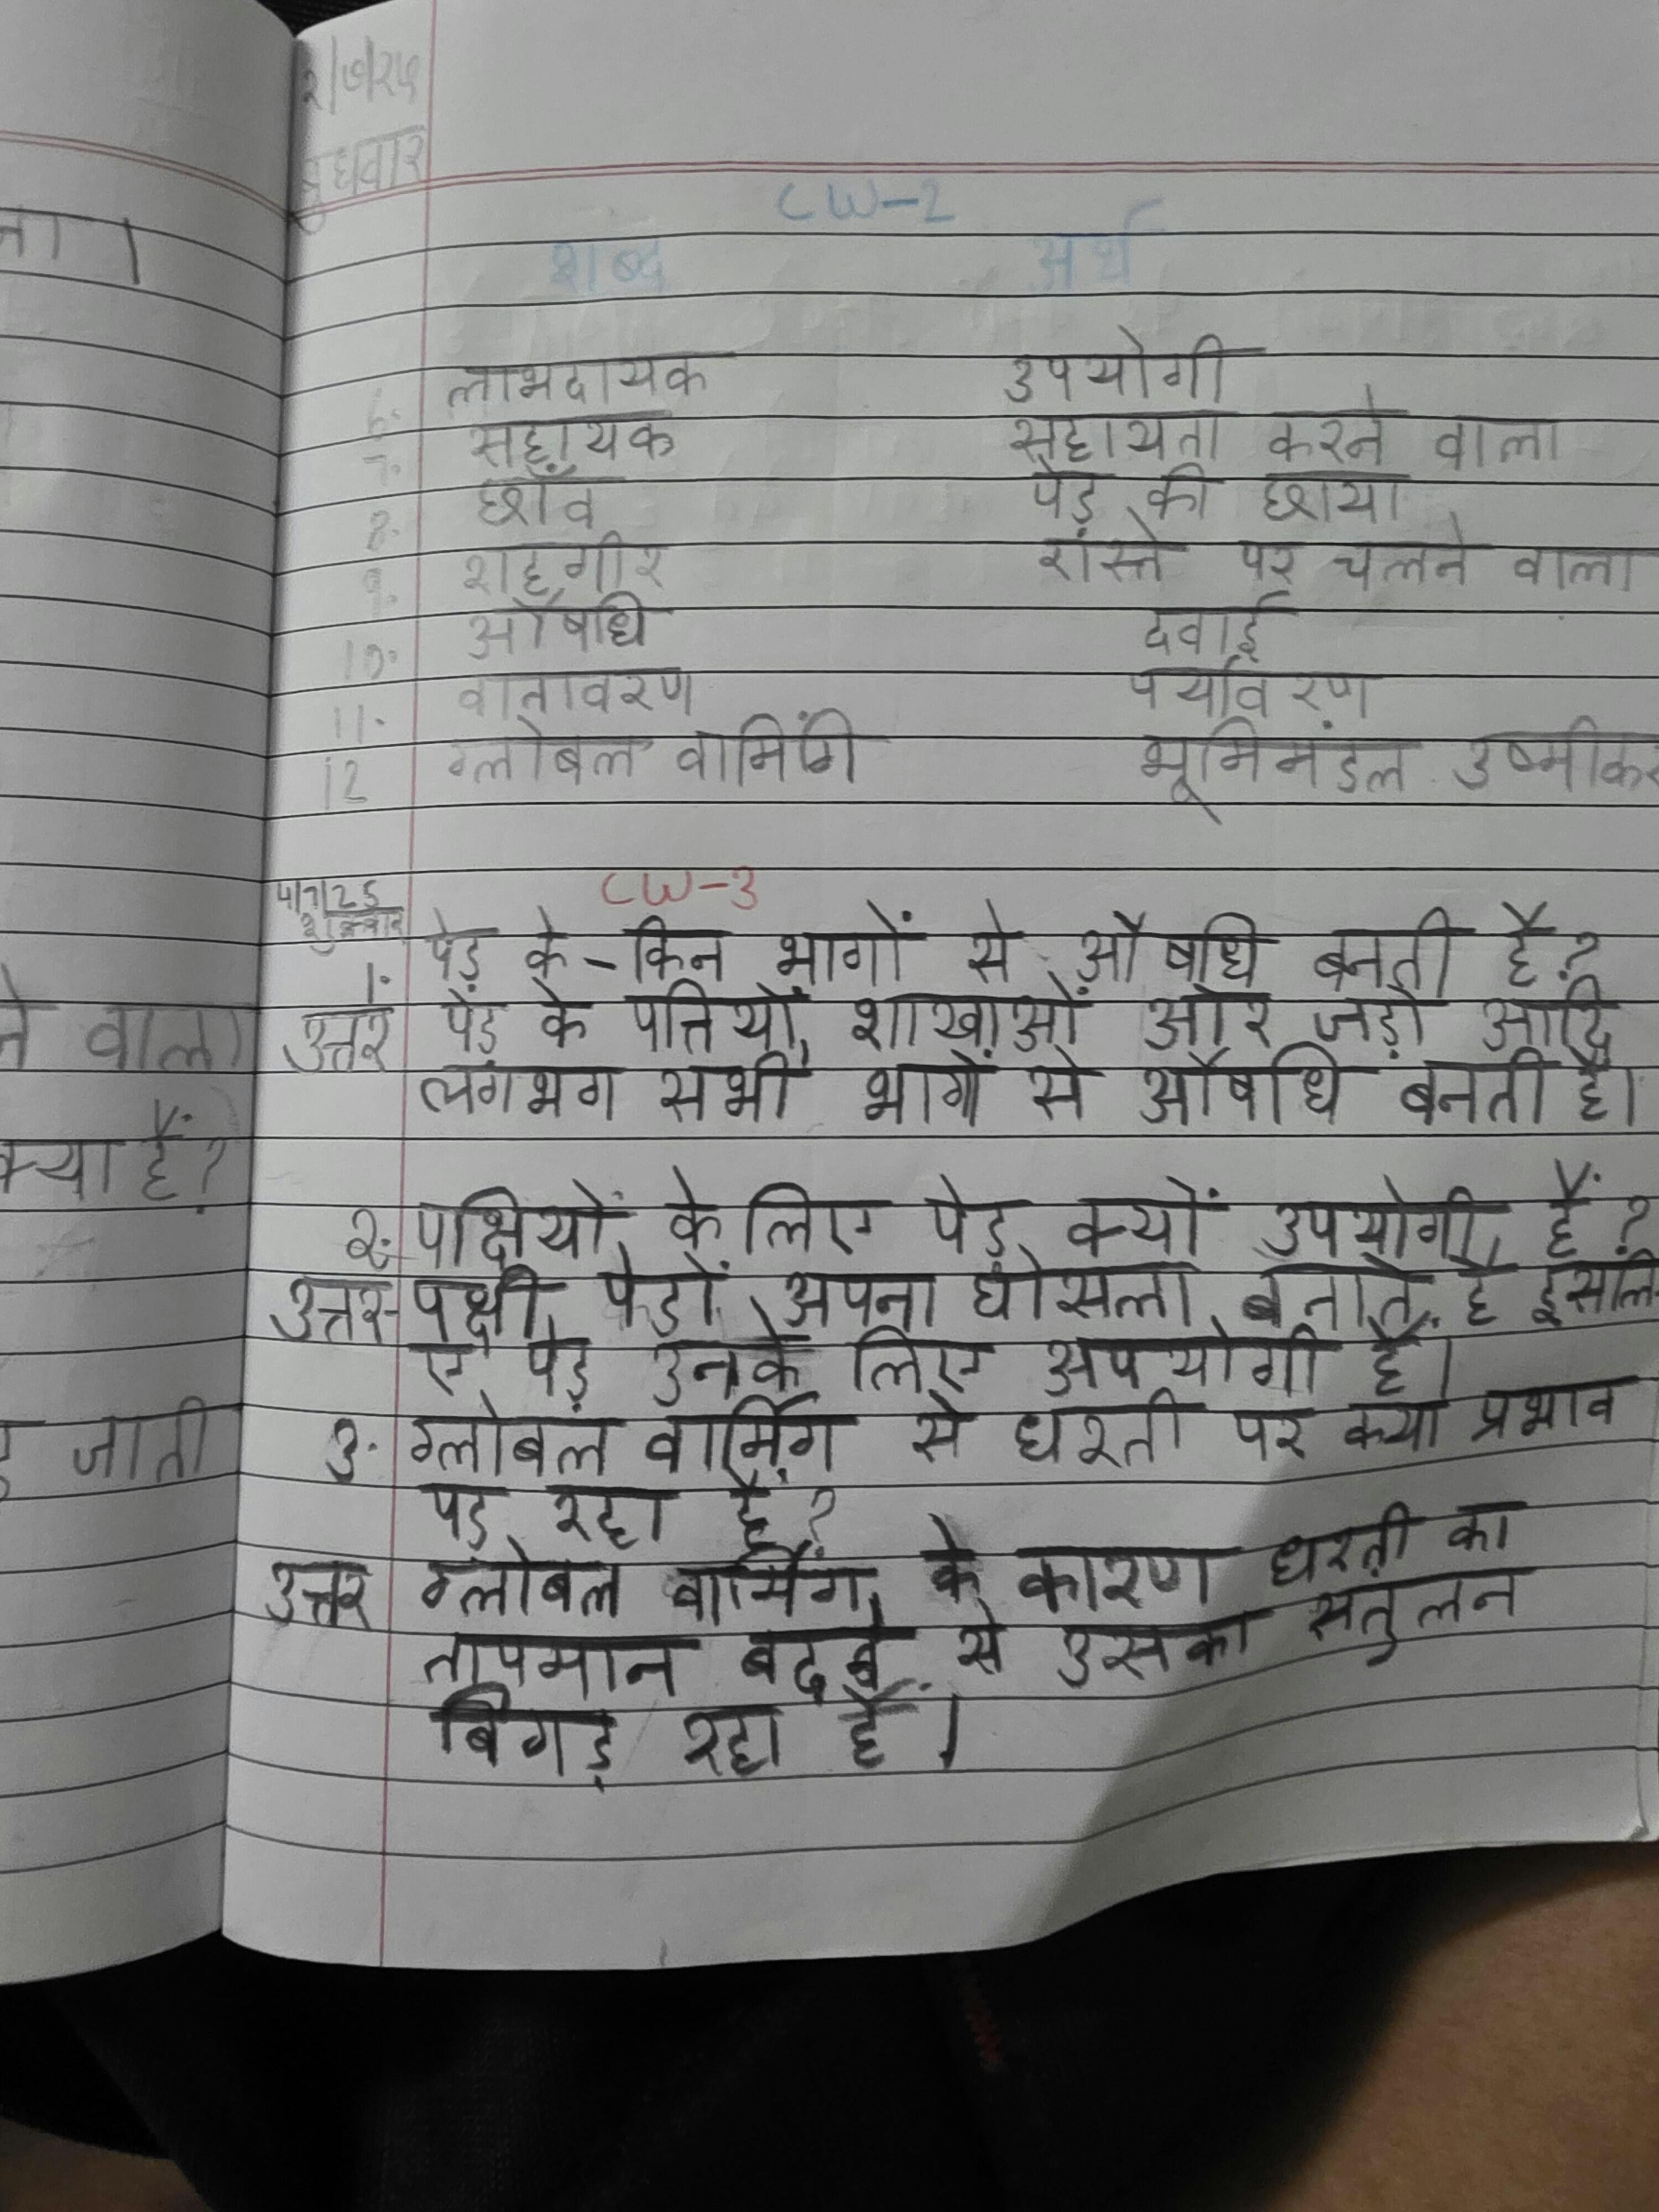 २/७/२५
बुधवार
CW-2
शब्द अर्थ
6. लाभदायक उपयोगी
7. सहायक सहायता करने वाला
8. छाँव पेड़ की छाया
9. राहगीर रास्ते पर चलने वाला
10. औषधि दवाई
11. वातावरण पर्यावरण
12 ग्लोबल वार्मिंग भूमिमंडल उष्मीकर
4/7/25 CW-3
शुक्रवार
1. पेड़ के-किन भागों से औषधि बनती है?
उत्तर पेड़ के पत्तियों, शाखाओं और जड़ों आदि
लगभग सभी भागों से औषधि बनती है।
२. पक्षियों के लिए पेड़ क्यों उपयोगी हैं?
उत्तर- पक्षी पेड़ों अपना घोसला बनाते है इसलि-
ए पेड़ उनके लिए उपयोगी हैं।
3. ग्लोबल वार्मिंग से धरती पर क्या प्रभाव
पड़ रहा है?
उत्तर ग्लोबल वार्मिंग के कारण धरती का
तापमान बढ़ने से उसका संतुलन
बिगड़ रहा है।
ना।
ने वाला
क्या हैं?
जाती